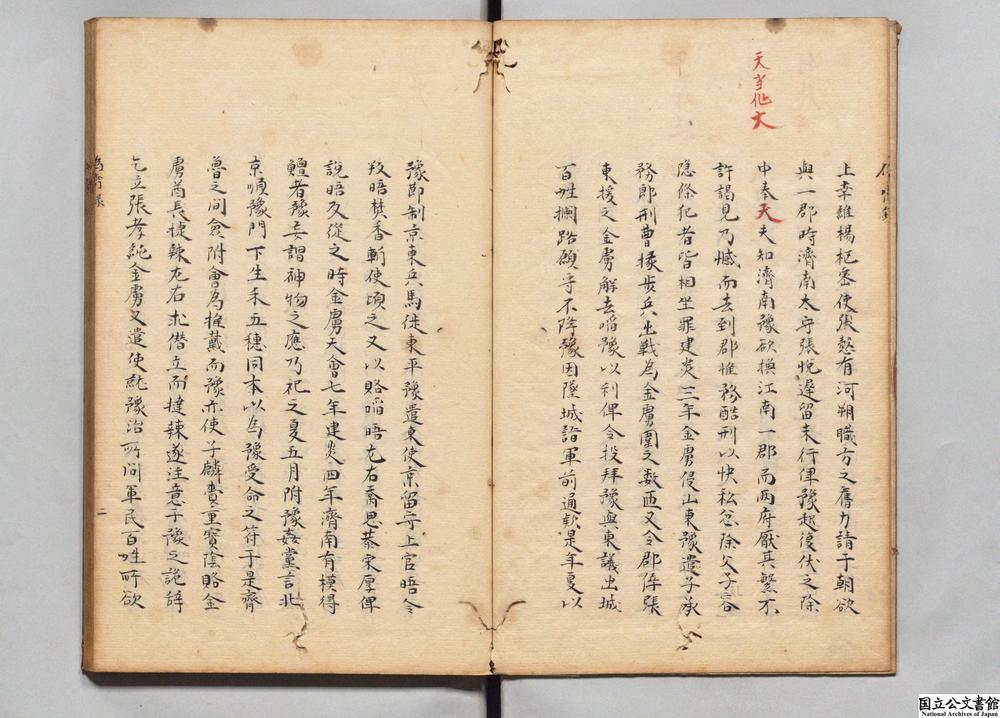 天当作大
上幸維揚樞密使張慤有河朔職方之舊力請于朝欲
與一郡時濟南太守張悅遲留未行俾豫起復伏之除
中奉天夫知濟南豫欲換江南一郡而兩府厭其繁不
許謁見乃憾而去到郡惟務酷刑以快私忿除父子容
隱條犯者皆相坐罪建炎三年金虜侵山東豫遣子承
務郎刑曹掾步兵出戰為金虜圍之數匝又令郡倅張
東援之金虜解去啗豫以利俾令投拜豫與東議出城
百姓攔路願守不降豫因墜城詣軍前通款是年夏以
豫節制京東兵馬徙東平豫遣東使京留守上官晤令
叛晤焚香斬使頃之又以賂啗晤左右喬思恭宋厚俾
說晤及從之時金虜天會七年建炎四年濟南有模得
鱣者豫妄謂神物之應乃祀之夏五月附豫姦黨言北
京順豫門下生禾五穗同本以為豫受命之符于是齊
魯之間僉附會為推戴而豫亦使子麟賫重寶陰賂金
虜酋長撻辣左右求僭立而撻辣遂注意于豫之詭辭
乞立張孝純金虜又遣使就豫治所問軍民百姓所欲
二
国立公文書館
National Archives of Japan